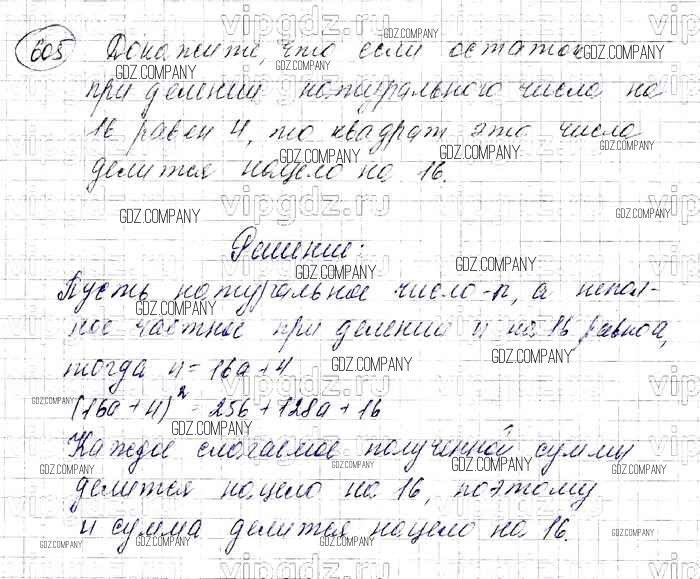 605 Докажите, что если остаток
при делении натурального числа на
16 равен 4, то квадрат это числа
делится нацело на 16.
Решение:
Пусть натуральное число - n, а непол-
ное частное при делении n на 16 равно a,
тогда n = 16a + 4
(16a + 4)² = 256 + 128a + 16
Каждое слагаемое полученной суммы
делится нацело на 16, поэтому
и сумма делится нацело на 16.